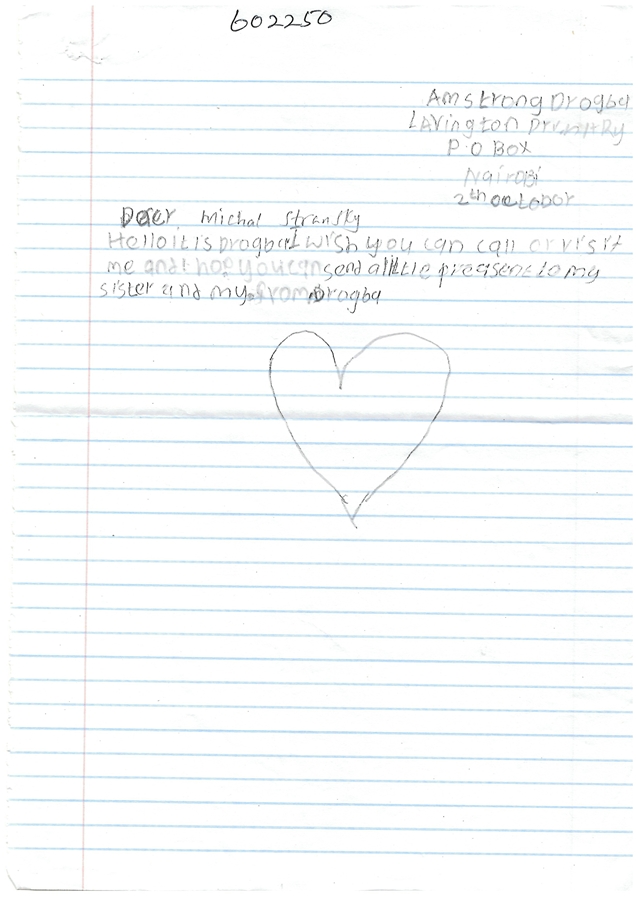 602250
Amstrong Drogba
LAVington Primary
P.O Box
Nairobi
2th octobor
Dear. Michal Stransky
Hello it is Drogba I wish you can call or visit
me and I hop you can send a little presense to my
sister and my. from Drogba